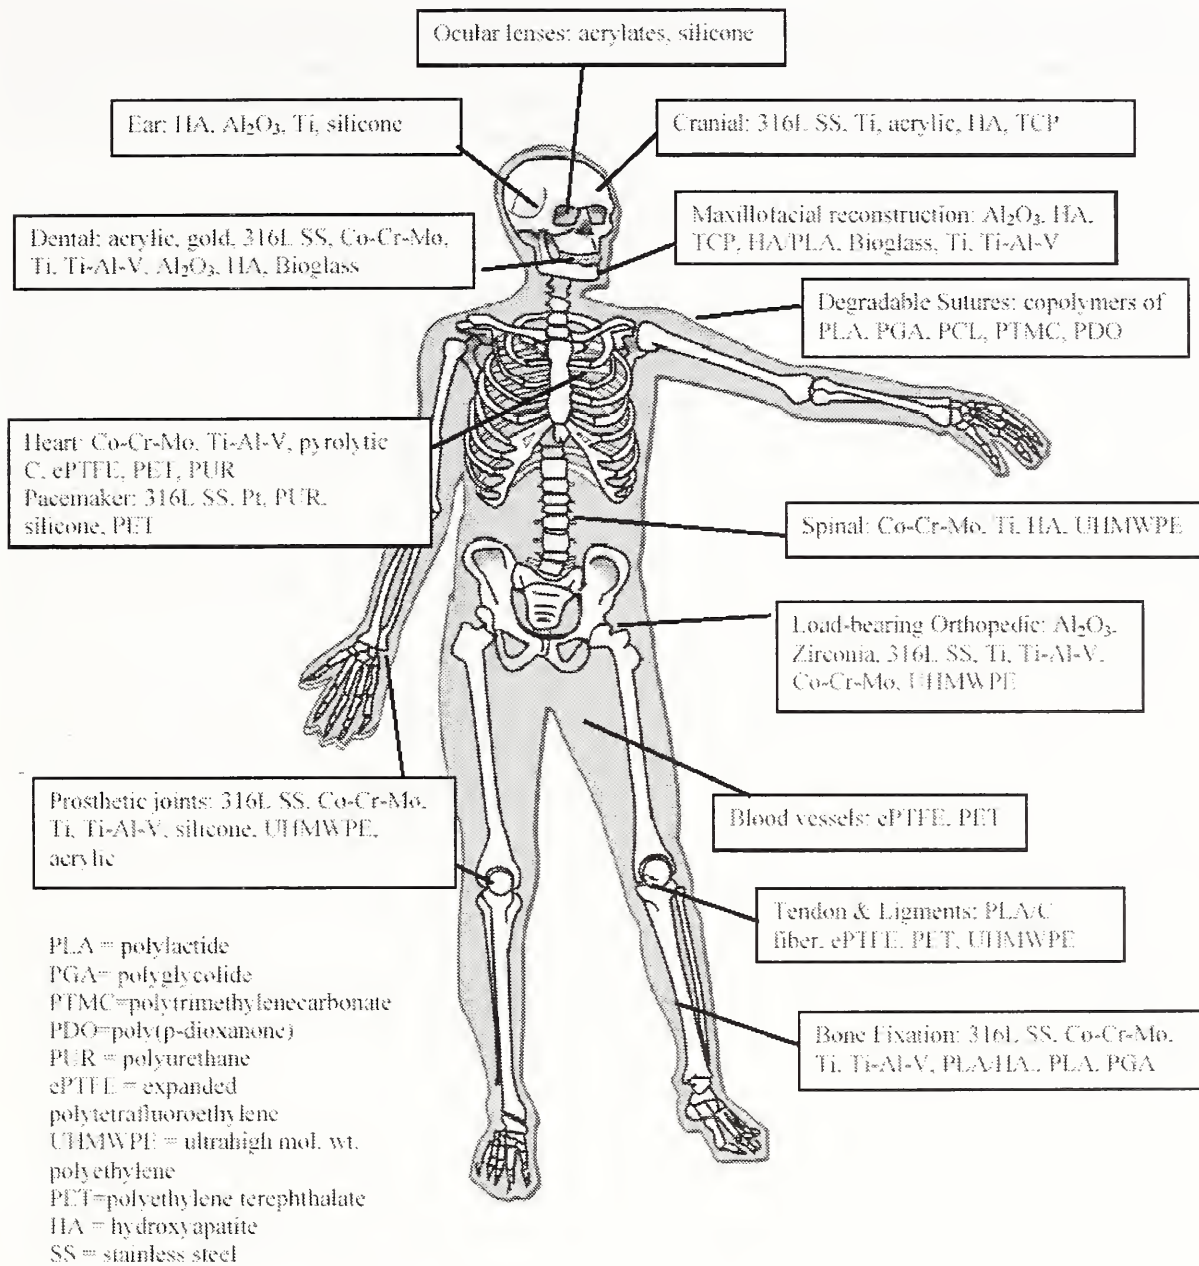 Ocular lenses: acrylates, silicone
Ear: HA, Al₂O₃, Ti, silicone
Cranial: 316L SS, Ti, acrylic, HA, TCP
Dental: acrylic, gold, 316L SS, Co-Cr-Mo,
Ti, Ti-Al-V, Al₂O₃, HA, Bioglass
Maxillofacial reconstruction: Al₂O₃, HA,
TCP, HA/PLA, Bioglass, Ti, Ti-Al-V
Degradable Sutures: copolymers of
PLA, PGA, PCL, PTMC, PDO
Heart: Co-Cr-Mo, Ti-Al-V, pyrolytic
C, ePTFE, PET, PUR
Pacemaker: 316L SS, Pt, PUR,
silicone, PET
Spinal: Co-Cr-Mo, Ti, HA, UHMWPE
Load-bearing Orthopedic: Al₂O₃,
Zirconia, 316L SS, Ti, Ti-Al-V,
Co-Cr-Mo, UHMWPE
Prosthetic joints: 316L SS, Co-Cr-Mo,
Ti, Ti-Al-V, silicone, UHMWPE,
acrylic
Blood vessels: ePTFE, PET
Tendon & Ligments: PLA/C
fiber, ePTFE, PET, UHMWPE
Bone Fixation: 316L SS, Co-Cr-Mo,
Ti, Ti-Al-V, PLA/HA,, PLA, PGA
PLA = polylactide
PGA= polyglycolide
PTMC=polytrimethylenecarbonate
PDO=poly(p-dioxanone)
PUR = polyurethane
ePTFE = expanded
polytetrafluoroethylene
UHMWPE = ultrahigh mol. wt.
polyethylene
PET=polyethylene terephthalate
HA = hydroxyapatite
SS = stainless steel